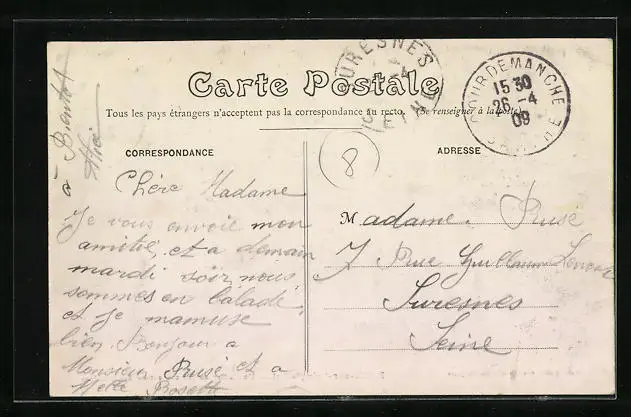 Carte Postale
Tous les pays étrangers n'acceptent pas la correspondance au recto. (Se renseigner à la poste)
CORRESPONDANCE
ADRESSE
SURESNES
COURDEMANCHE
15 30
26 -4
09
SARTHE
8
à Bientôt
Chère Madame
Je vous envoie mon
amitié, et a demain
mardi soir, nous
sommes en balade
et Je mamuse
bien. Bonjour a
Monsieur Rusé et a
Melle
Madame. Rusé
7 Rue Guillaume
Suresnes
Seine